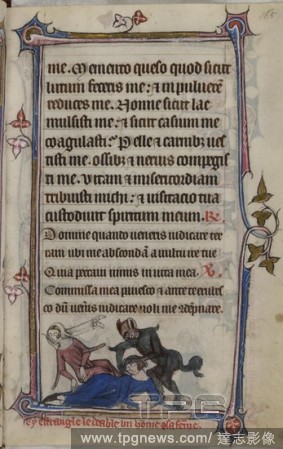 165
me. Memento queso quod sicut
lutum feceris me: et in pulverem
reduces me. Nonne sicut lac
mulsisti me: et sicut caseum me
coagulasti: Pelle et carnibus ves
tisti me. ossibus et nervis compegis
ti me. vitam et misericordiam
tribuisti michi: et visitacio tua
custodivit spiritum meum. R
Domine quando veneris iudicare ter
ram ubi me abscondam a vultu ire tue
Quia peccavi nimis in vita mea. V
Commissa mea pavesco et ante te erubes
co dum veneris iudicare noli me
TPG
www.tpgnews.com/達志影像